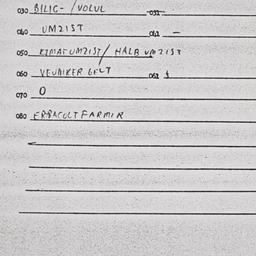 030 BILIC- / VOLUL 031
040 UMZIST 041 -
050 KIMATUMZIST / HALB UMZIST
060 VEUNIKER GELT 061 1
070 0
080 ERBACULTFARMIR